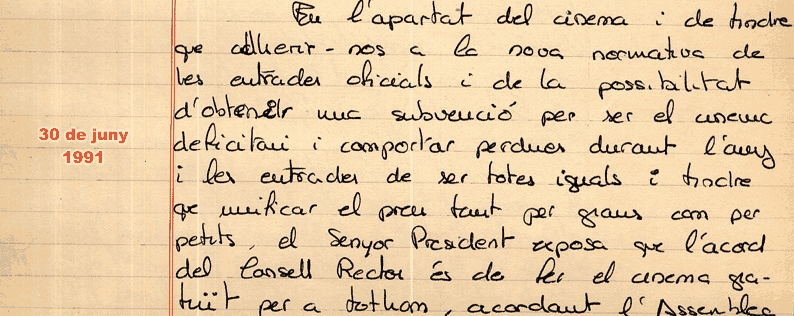 En l'apartat del cinema i de tindre
que adherir-nos a la nova normativa de
les entrades oficials i de la possibilitat
d'obtenir una subvenció per ser el cinema
deficitari i comportar perdues durant l'any
i les entrades de ser totes iguals i tindre
30 de juny
1991
que unificar el preu tant per grans com per
petits, el Senyor President exposa que l'acord
del Consell Rector és de fer el cinema gra-
tuït per a tothom, acordant l'Assemblea